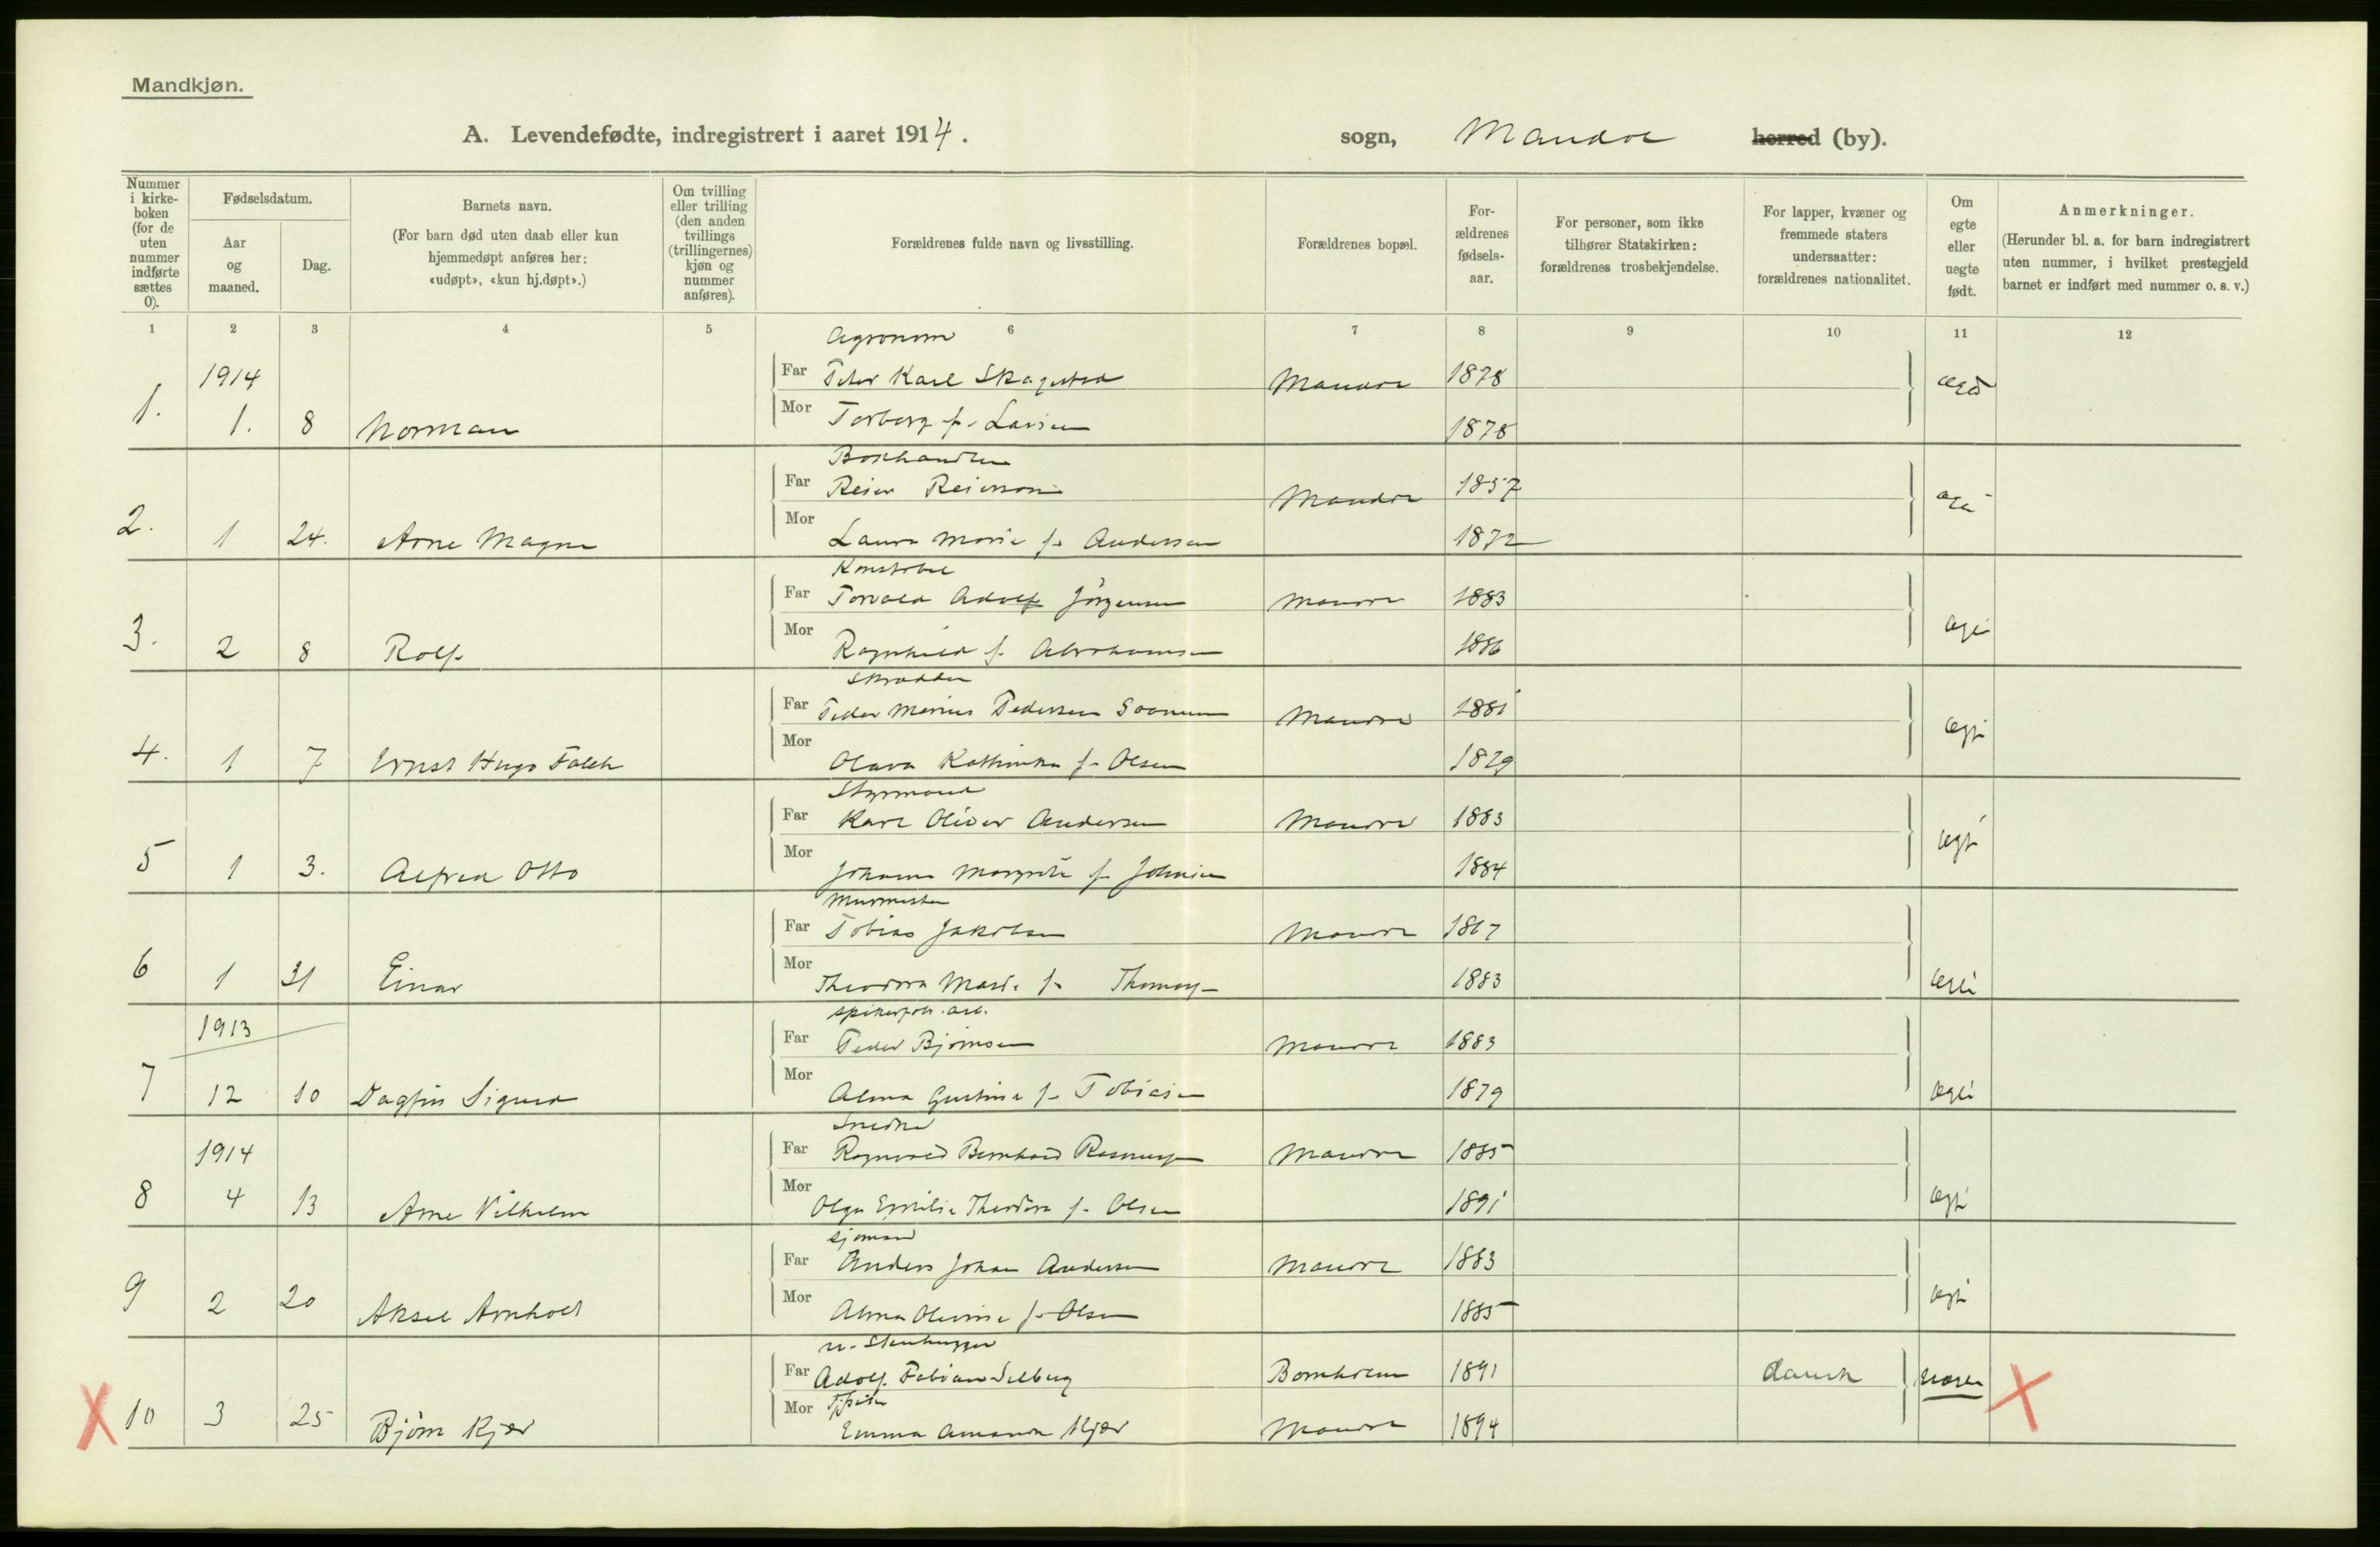 Mandkjøn.
A. Levendefødte, indregistrert i aaret 1914. sogn, Mandal herred (by).
Nummer i kirkeboken (for de uten nummer indførte sættes 0).
Fødselsdatum.
Aar og maaned.
Dag.
Barnets navn.
(For barn død uten daab eller kun hjemmedøpt anføres her: «udøpt», «kun hj.døpt».)
Om tvilling eller trilling (den anden tvillings (trillingernes) kjøn og nummer anføres).
Forældrenes fulde navn og livsstilling.
Forældrenes bopæl.
Forældrenes fødselsaar.
For personer, som ikke tilhører Statskirken: forældrenes trosbekjendelse.
For lapper, kvæner og fremmede staters undersaatter: forældrenes nationalitet.
Om egte eller uegte født.
Anmerkninger.
(Herunder bl. a. for barn indregistrert uten nummer, i hvilket prestegjeld barnet er indført med nummer o. s. v.)
1 2 3 4 5 6 7 8 9 10 11 12
Agronom
1914 Far Peter Karl Skagestad Mandal 1878 ægte
1. 1. 8 Norman Mor Torborg f. Larsen 1878
Bokhandler
Far Reier Reierson Mandal 1857
2. 1 24. Arne Magne Mor Laura Marie f. Andersen 1872
Konstabel
Far Torvald Adolf Jörgensen Mandal 1883 ægte
3. 2 8 Rolf Mor Ragnhild f. Abrahamsen 1886
Skrædder
Far Peder Marius Pedersen Mandal 1881 ægte
4. 1 7 Ernst Hugo Falck Mor Olava Kathinka f. Olsen 1879
Styrmand
Far Karl Oliver Andersen Mandal 1883 ægte
5 1 3. Alfred Otto Mor Johanne Margrete f. Johnsen 1884
Murmester
Far Tobias Jakobsen Mandal 1867
6 1 31 Einar Mor Theodora Marie f. 1883 ægte
1913 Far Peder Bjørnsen Mandal 1883
7 12 10 Dagfin Sigurd Mor Alma Gustine f. Tobiasen 1879 ægte
Snedker
1914 Far Ragnvald Bernhard Rasmussen Mandal 1885
8 4 13 Arne Vilhelm Mor Olga Emilie Theodora f. Olsen 1891 ægte
sjømand
Far Anders Johan Andersen Mandal 1883
9 2 20 Aksel Arnholt Mor Alma Olevine f. Olsen 1885 ægte
u. Stenhugger
Far Adolf Fabian Selberg Bornholm 1891 dansk uægte
10 3 25 Bjørn Kjær Mor Emma Amanda Kjær Mandal 1894